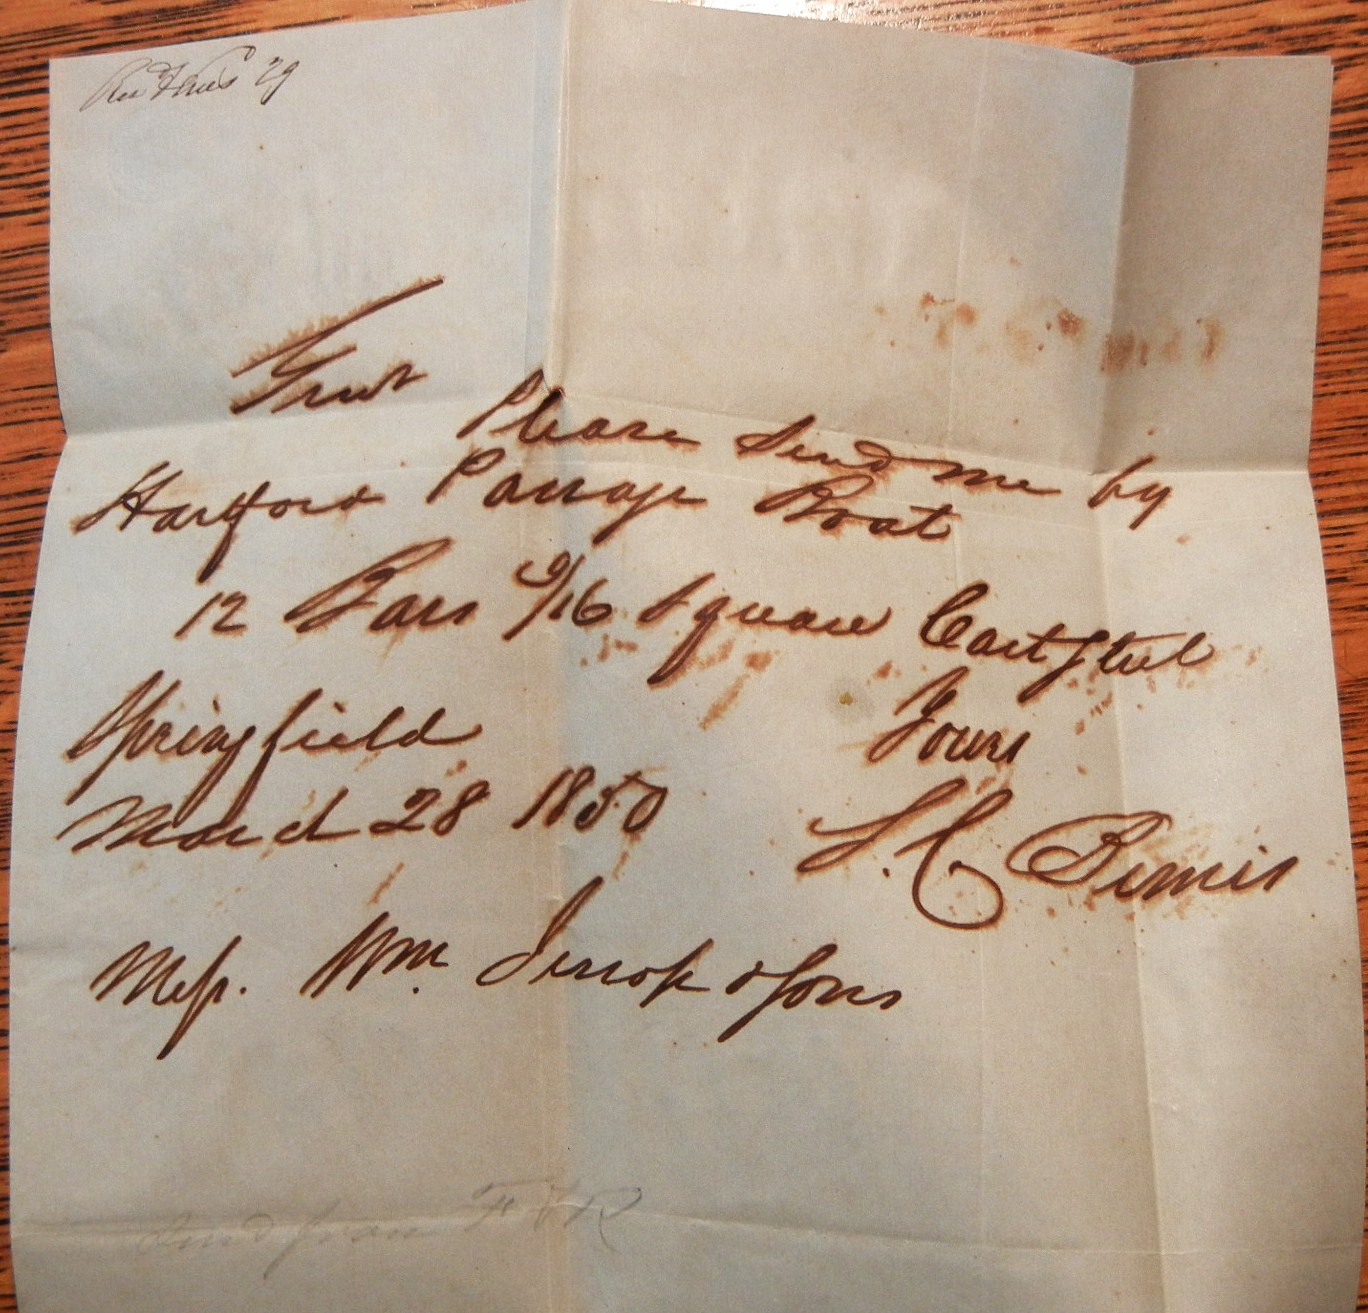 Gent
Please Send me by
Hartford Passage Boat
12 Bars 9/16 Square Cast Steel
Springfield
Yours
March 28 1850
S. C. Bemis
Mess. Wm. Jessop & Sons
Send from